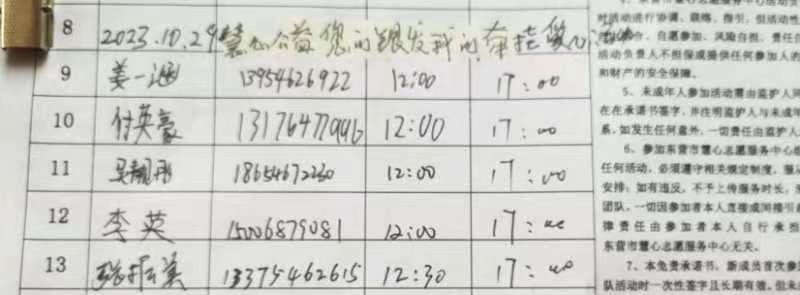 8 2023.10.29慧心公益您的银发我的牵挂
9 姜一涵 13954626922 12:00 17:00
10 付英豪 13176477946 12:00 17:00
11 18654672230 12:00 17:00
12 李英 15006879081 12:00 17:00
13 13375462615 12:30 17:00
时活动进行协调、联络、指引,但活动性
合、自愿参加、风险自担、责任自
活动负责人不担保或提供任何参加人的
和财产的安全保障。
5、未成年人参加活动需由监护人同
在在承诺书签字,并注明监护人与未成年
系,如发生任何意外,一切责任由监护人
6、参加东营市慧心志愿服务中心组
任何活动,必须遵守相关规定制度,服从
安排;如有违反,不予上传服务时长,
团队。一切因参加者本人直接或间接引
律责任由参加者本人自行承担
东营市慧心志愿服务中心无关。
7、本免责承诺书,新成员首次参加
队活动时一次性签字且长期有效,但未